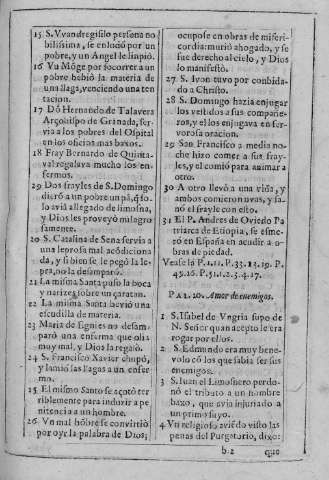 15 S. Vvandregisilo persona no
bilissima, se enlodò por un
pobre, y un Angel le limpiò.
16 Vn Mõge por socorrer a un
pobre bebiò la materia de
una llaga, venciendo una ten
tacion.
17 Dõ Hernando de Talavera
Arçobispo de Granada, ser-
via a los pobres del Ospital
en los oficios mas baxos.
18 Fray Bernardo de Quinta-
val regalava mucho los en-
fermos.
19 Dos frayles de S. Domingo
dierõ a un pobre un pã, q̃ so-
lo aviã allegado de limosna,
y Dios les proveyò milagro
samente.
20 S. Catalina de Sena servia a
una leprosa mal acõdiciona
da, y si bien se le pegò la le-
pra, no la desamparò.
21 La misma Santa puso la boca
y narizes sobre un çaratan.
22 La misma Santa beviò una
escudilla de materia.
23 Maria de Egnies no desam-
parò una enferma que olia
muy mal, y Dios la regalò.
24 S. Francisco Xavier chupò,
y lamiò las llagas a un enfer
mo.
25 El mismo Santo se açotò ter
riblemente para induzir a pe
nitencia a un hombre.
26 Vn mal hõbre se convirtiò
por oyr la palabra de Dios;
ocupose en obras de miseri-
cordia: muriò ahogado, y se
fue derecho al cielo, y Dios
lo manifestò.
27 S. Ivon tuvo por conbida-
do a Christo.
28 S. Domingo hazia enjugar
los vestidos a sus compañe-
ros, y el los enjugava en fer-
vorosa oracion.
29 San Francisco a media no-
che hizo comer a sus fray-
les, y el comiò para animar a
otro.
30 A otro llevò a una viña, y
ambos comieron uvas, y sa-
nò el frayle con esto.
31 El P. Andres de Oviedo Pa
triarca de Etiopia, se esme-
rò en España en acudir a o-
bras de piedad.
Vease la P. 1. 11. P. 33. 13. 19. P.
45. 16. P. 51. 1. 2. 3. 4. 17.
PAL. 10. Amor de enemigos.
1 S. Isabel de Vngria supo de
N. Señor quan acepto le era
rogar por ellos.
2 S. Edmundo era muy bene-
volo cõ los que sabia ser sus
enemigos.
3 S. Iuan el Limosnero perdo-
nò el tributo a un hombre
baxo, que avia injuriado a
un primo suyo.
4 Vn religioso aviẽdo visto las
penas del Purgatorio, dixo:
b 2 que